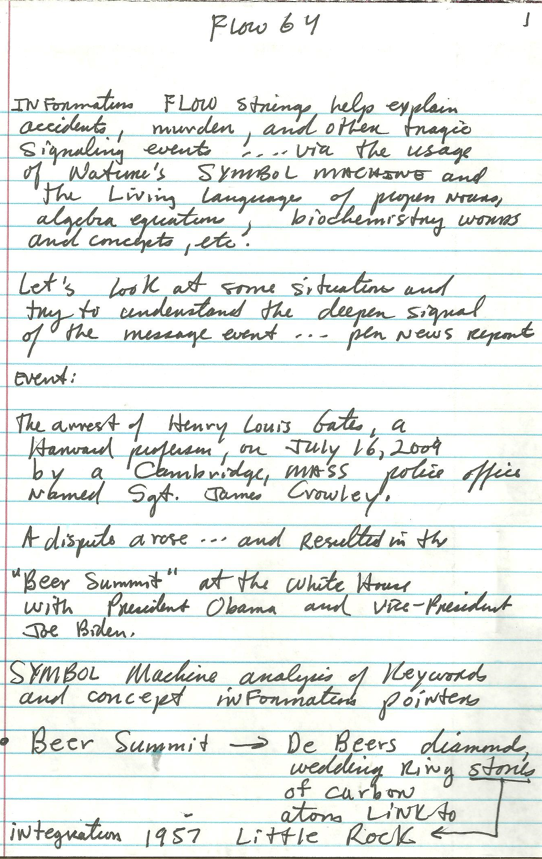 Flow 64
1
INFormation FLOW strings help explain
accidents, murder, and other tragic
signaling events .... via the usage
of Nature's SYMBOL MACHINE and
the Living Languages of proper nouns,
algebra equations, biochemistry words
and concepts, etc.
Let's look at some situation and
try to understand the deeper signal
of the message event ... per News report
Event:
The arrest of Henry Louis Gates, a
Harvard professor, on July 16, 2009
by a Cambridge, MASS police office
named Sgt. James Crowley.
A dispute arose ... and resulted in the
"Beer Summit" at the White House
with President Obama and Vice-President
Joe Biden.
SYMBOL Machine analysis of Keywords
and concept inFormation pointers
• Beer Summit → De Beers diamond,
wedding Ring stones
of carbon
atoms LINK to
integration 1957 Little Rock ←